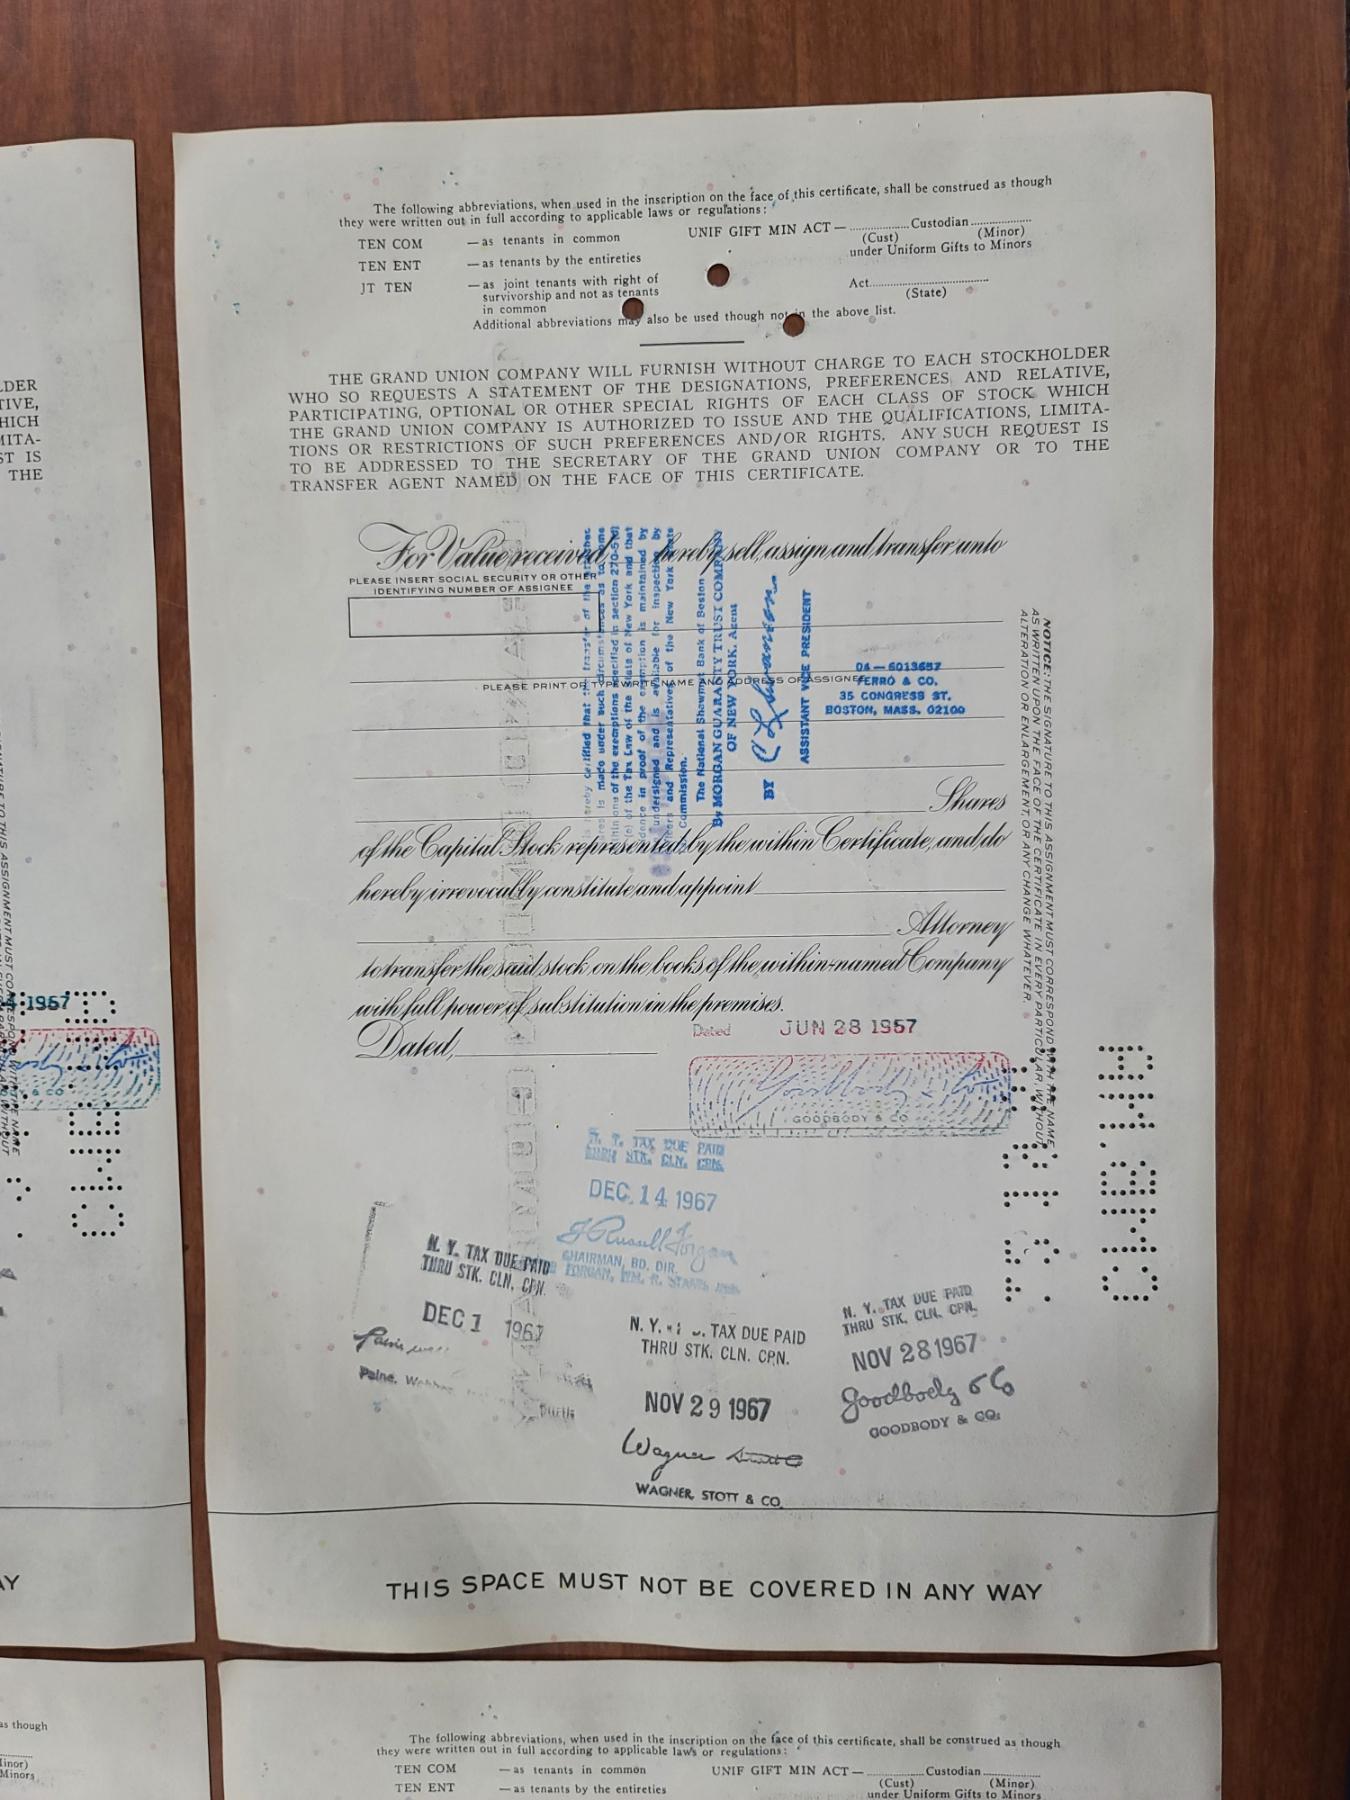 The following abbreviations, when used in the inscription on the face of this certificate, shall be construed as though
they were written out in full according to applicable laws or regulations:
TEN COM — as tenants in common
UNIF GIFT MIN ACT — Custodian
(Cust) (Minor)
TEN ENT — as tenants by the entireties
under Uniform Gifts to Minors
JT TEN — as joint tenants with right of
survivorship and not as tenants
in common
Act
(State)
Additional abbreviations may also be used though not in the above list.
THE GRAND UNION COMPANY WILL FURNISH WITHOUT CHARGE TO EACH STOCKHOLDER
WHO SO REQUESTS A STATEMENT OF THE DESIGNATIONS, PREFERENCES AND RELATIVE,
PARTICIPATING, OPTIONAL OR OTHER SPECIAL RIGHTS OF EACH CLASS OF STOCK WHICH
THE GRAND UNION COMPANY IS AUTHORIZED TO ISSUE AND THE QUALIFICATIONS, LIMITA-
TIONS OR RESTRICTIONS OF SUCH PREFERENCES AND/OR RIGHTS. ANY SUCH REQUEST IS
TO BE ADDRESSED TO THE SECRETARY OF THE GRAND UNION COMPANY OR TO THE
TRANSFER AGENT NAMED ON THE FACE OF THIS CERTIFICATE.
For Value received, hereby sell, assign and transfer unto
PLEASE INSERT SOCIAL SECURITY OR OTHER
IDENTIFYING NUMBER OF ASSIGNEE
PLEASE PRINT OR TYPEWRITE NAME AND ADDRESS OF ASSIGNEE
04-6013657
FERRO & CO.
35 CONGRESS ST.
BOSTON, MASS. 02100
hereby certified that the transfer of the
is made under such circumstances as to come
within one of the exemptions specified in section 270-5(d)
of the Tax Law of the State of New York and that
evidence in proof of the exemption is maintained by
undersigned and is available for inspection by
and Representatives of the New York State
Commission.
The National Shawmut Bank of Boston
By MORGAN GUARANTY TRUST COMPANY
OF NEW YORK, Agent
BY C L Swanson
ASSISTANT VICE PRESIDENT
Shares
of the Capital Stock represented by the within Certificate, and do
hereby irrevocably constitute and appoint
Attorney
to transfer the said stock on the books of the within-named Company
with full power of substitution in the premises.
Dated,
Dated JUN 28 1967
GOODBODY & CO
NOTICE: THE SIGNATURE TO THIS ASSIGNMENT MUST CORRESPOND WITH THE NAME
AS WRITTEN UPON THE FACE OF THE CERTIFICATE IN EVERY PARTICULAR, WITHOUT
ALTERATION OR ENLARGEMENT, OR ANY CHANGE WHATEVER.
N. Y. TAX DUE PAID
THRU STK. CLN. CPN.
DEC. 14 1967
J Russell Forgan
CHAIRMAN, BD. DIR.
N. Y. TAX DUE PAID
THRU STK. CLN. CPN.
DEC 1 1967
Paine, Webber
N. Y. TAX DUE PAID
THRU STK. CLN. CPN.
NOV 29 1967
Wagner Stott & Co
WAGNER, STOTT & CO.
N. Y. TAX DUE PAID
THRU STK. CLN. CPN.
NOV 28 1967
Goodbody & Co
GOODBODY & CO.
THIS SPACE MUST NOT BE COVERED IN ANY WAY
The following abbreviations, when used in the inscription on the face of this certificate, shall be construed as though
they were written out in full according to applicable laws or regulations:
TEN COM — as tenants in common
UNIF GIFT MIN ACT — Custodian
(Cust) (Minor)
TEN ENT — as tenants by the entireties
under Uniform Gifts to Minors